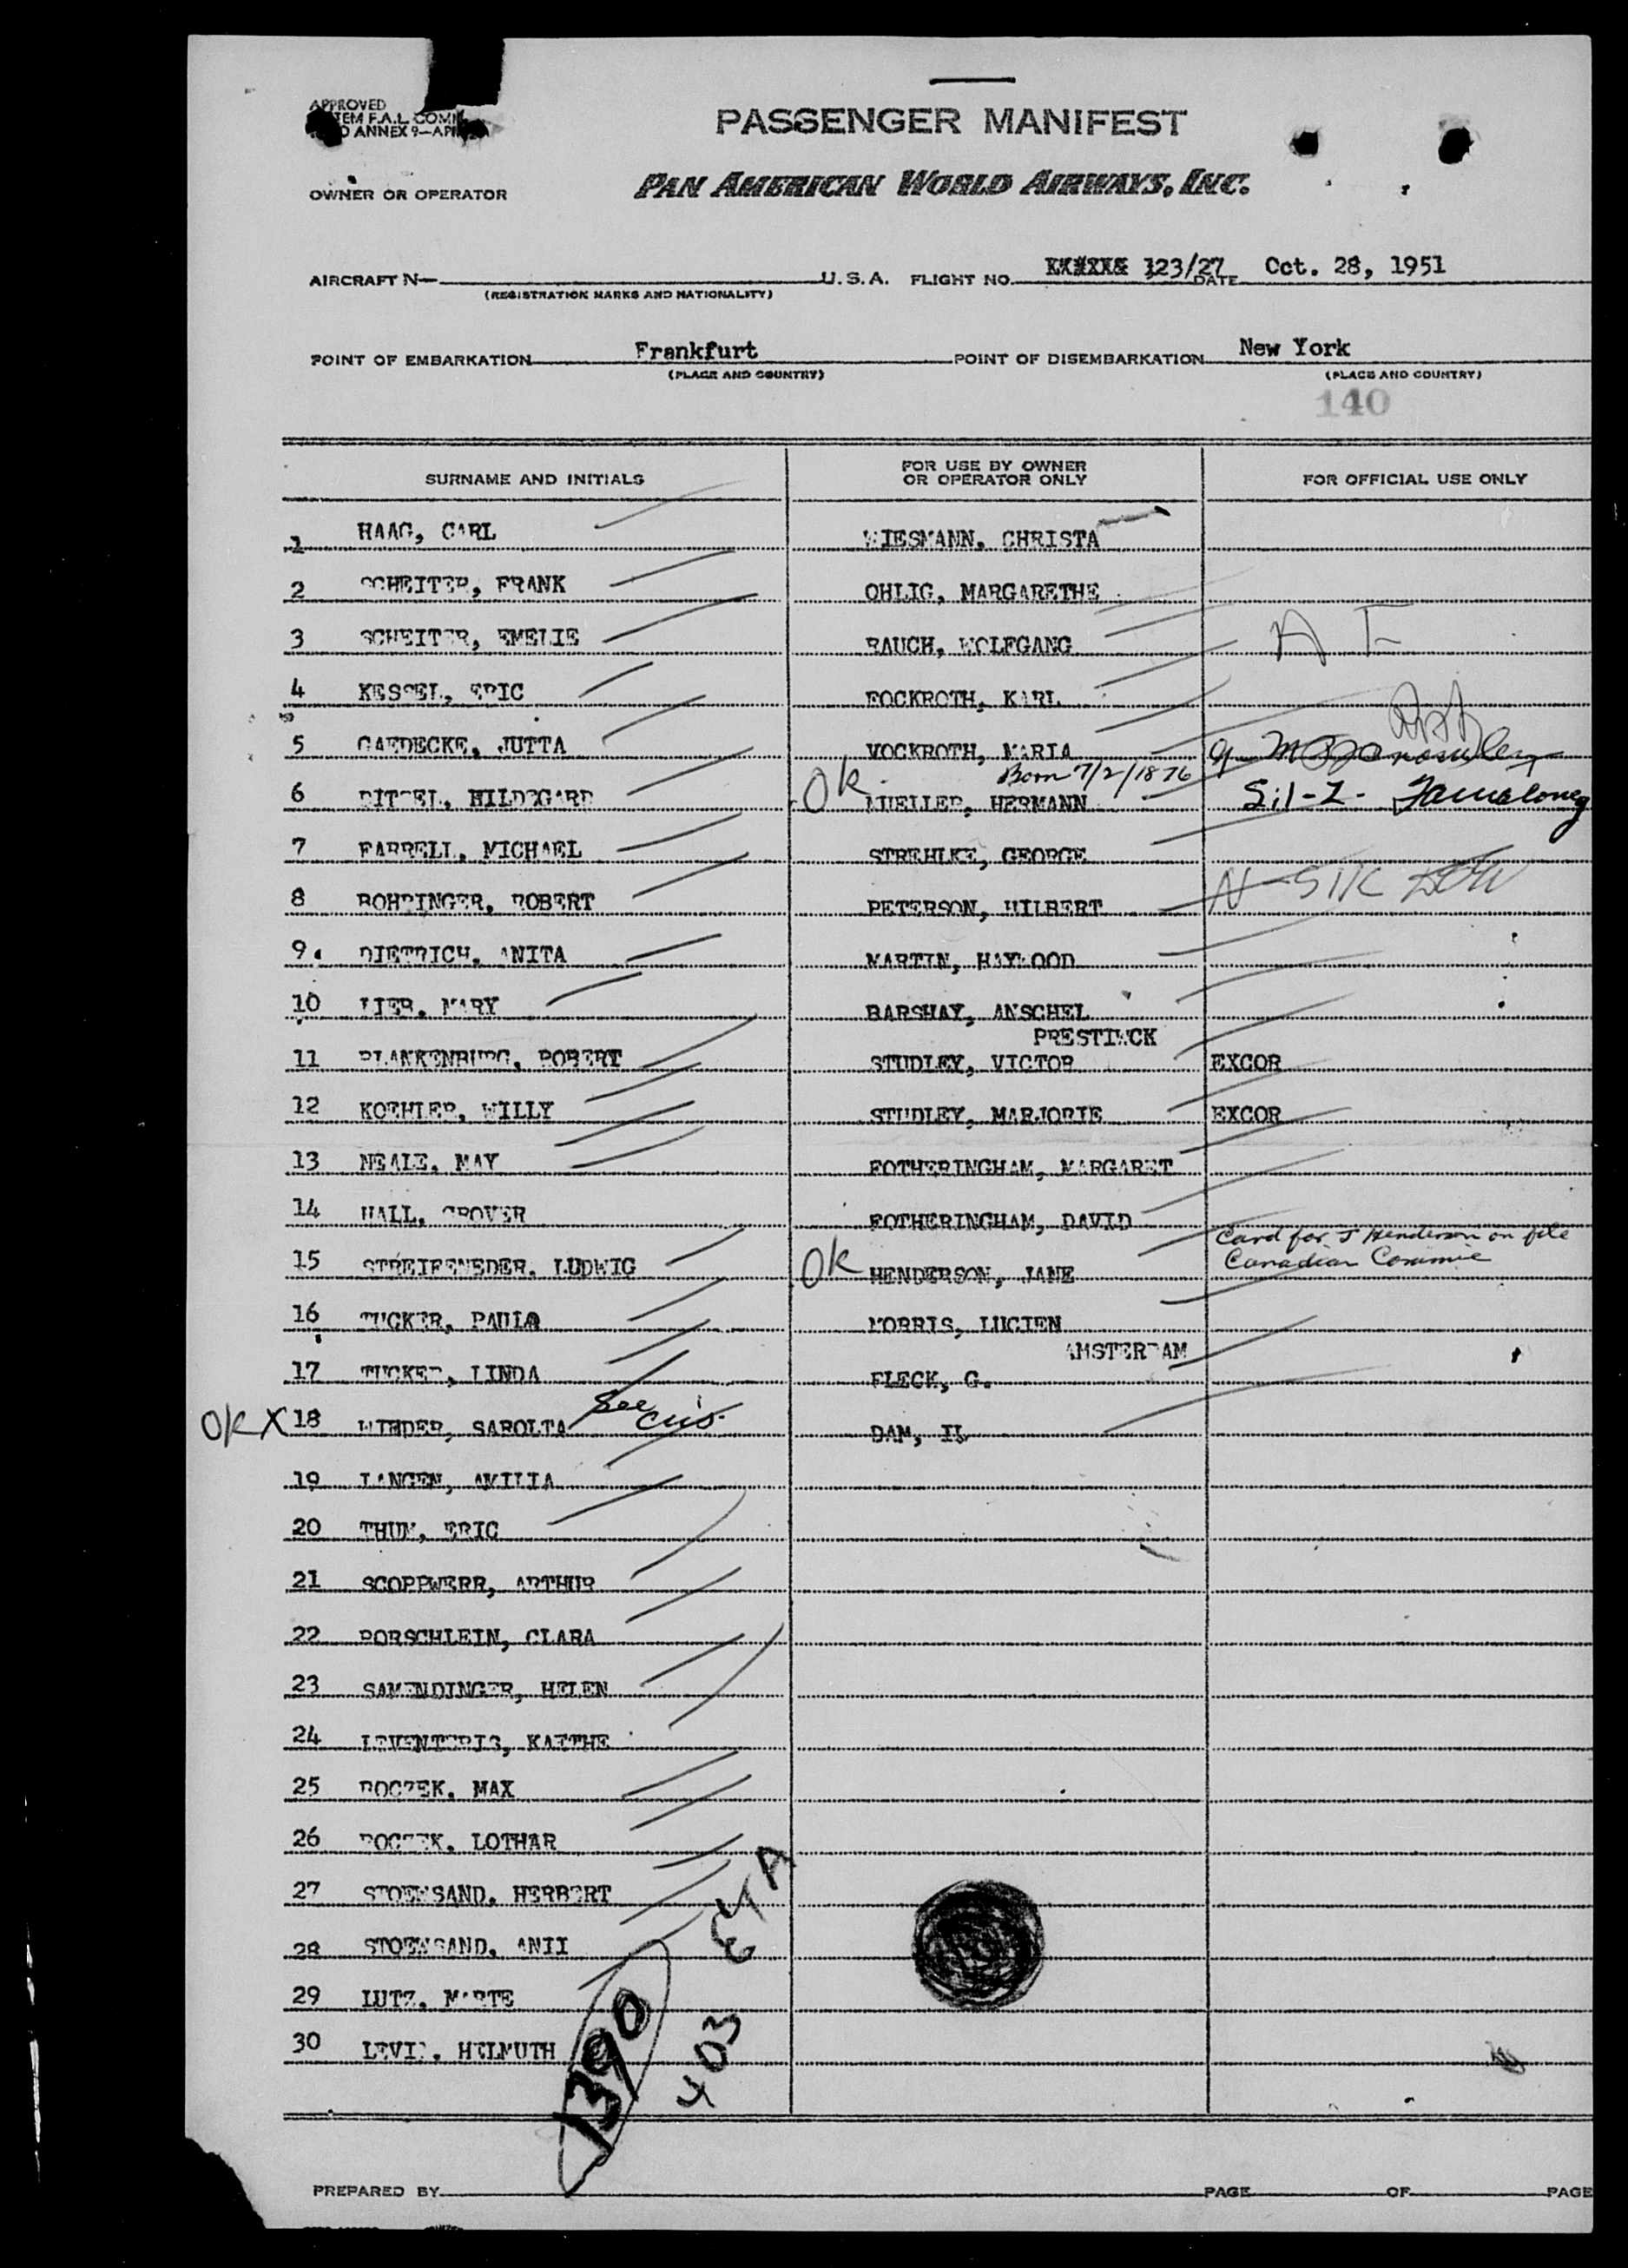 APPROVED
F.A.L. COMM
ANNEX 9—AP
PASSENGER MANIFEST
OWNER OR OPERATOR PAN AMERICAN WORLD AIRWAYS, INC.
AIRCRAFT N— U.S.A. FLIGHT NO. 123/27 DATE Oct. 28, 1951
(REGISTRATION MARKS AND NATIONALITY)
POINT OF EMBARKATION Frankfurt POINT OF DISEMBARKATION New York
(PLACE AND COUNTRY) (PLACE AND COUNTRY)
140
SURNAME AND INITIALS FOR USE BY OWNER OR OPERATOR ONLY FOR OFFICIAL USE ONLY
1 HAAG, CARL WIESMANN, CHRISTA
2 SCHEITER, FRANK OHLIG, MARGARETHE
3 SCHEITER, EMELIE RAUCH, WOLFGANG
4 KESSEL, ERIC KARL
5 GAEDECKE, JUTTA VOCKROTH, MARIA
Born 7/2/1876
6 HILDEGARD OK MUELLER, HERMANN
7 FARRELL, MICHAEL STREHLKE, GEORGE
8 BOHRINGER, ROBERT PETERSON, HILBERT
9 DIETRICH, ANITA MARTIN, HAYWOOD
10 LIEB, MARY BARSHAY, ANSCHEL
PRESTIWCK
11 BLANKENBURG, ROBERT STUDLEY, VICTOR EXCOR
12 KOEHLER, WILLY STUDLEY, MARJORIE EXCOR
13 NEALE, MAY FOTHERINGHAM, MARGARET
14 HALL, GROVER FOTHERINGHAM, DAVID
Card for J Henderson on file
15 STREIFENEDER, LUDWIG OK HENDERSON, JANE Canadian Commie
16 TUCKER, PAULA MORRIS, LUCIEN
AMSTERDAM
17 TUCKER, LINDA FLECK, G.
OK X 18 WIEDER, SAROLTA See DAM, H.
19 LANGEN, AMILIA
20 THUM, ERIC
21 SCOPPWERR, ARTHUR
22 PORSCHLEIN, CLARA
23 SAMENDINGER, HELEN
24 KAETHE
25 ROCZEK, MAX
26 ROCZEK, LOTHAR
27 STOEWSAND, HERBERT
28 STOEWSAND, ANII
29 LUTZ, MARTE
30 LEVIN, HELMUTH
1390
403
PREPARED BY PAGE OF PAGE